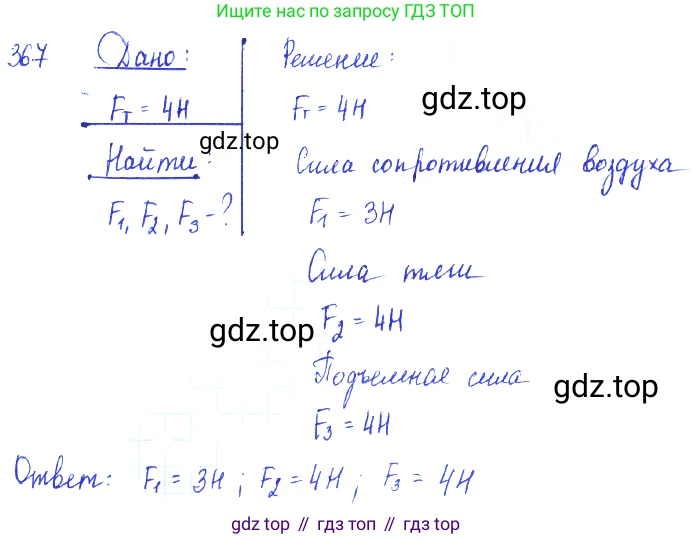 Ищите нас по запросу ГДЗ ТОП
367 Дано: Решение:
Fт = 4Н Fт = 4Н gdz.top
gdz.top
Найти: Сила сопротивления воздуха
F1, F2, F3 - ? F1 = 3Н
Сила тяги
gdz.top F2 = 4Н
Подъемная сила gdz.top
F3 = 4Н
Ответ: F1 = 3Н ; F2 = 4Н ; F3 = 4Н
gdz.top // гдз топ // гдз.top